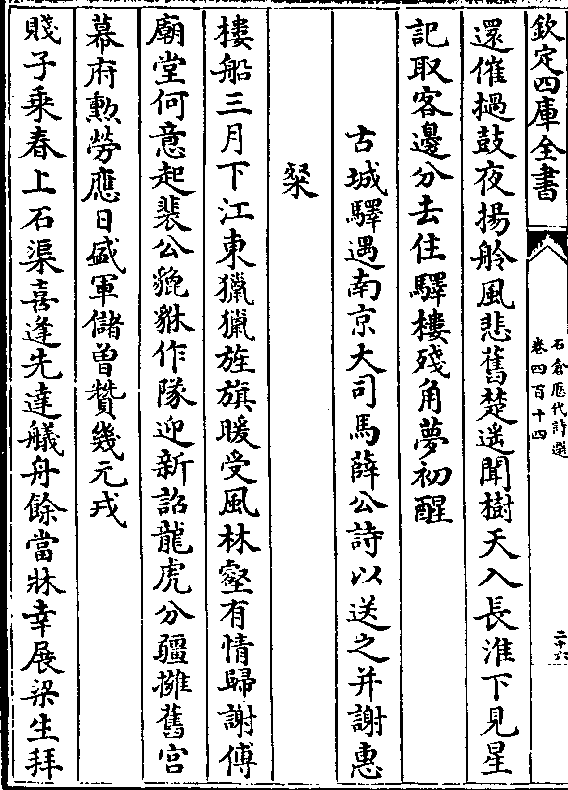 欽定四庫全書
石倉歷代詩選
卷四百十四
二十六
還催撾鼓夜揚舲風悲舊楚遥聞樹天入長淮下見星
記取客邊分去住驛樓殘角夢初醒
古城驛遇南京大司馬薛公詩以送之并謝惠
粲
樓船三月下江東獵獵旌旗暖受風林壑有情歸謝傅
廟堂何意起裴公貔貅作隊迎新詔龍虎分疆擁舊宫
幕府勲勞應日盛軍儲曽贊幾元戎
賤子乘春上石渠喜逢先達艤舟餘當牀幸展梁生拜